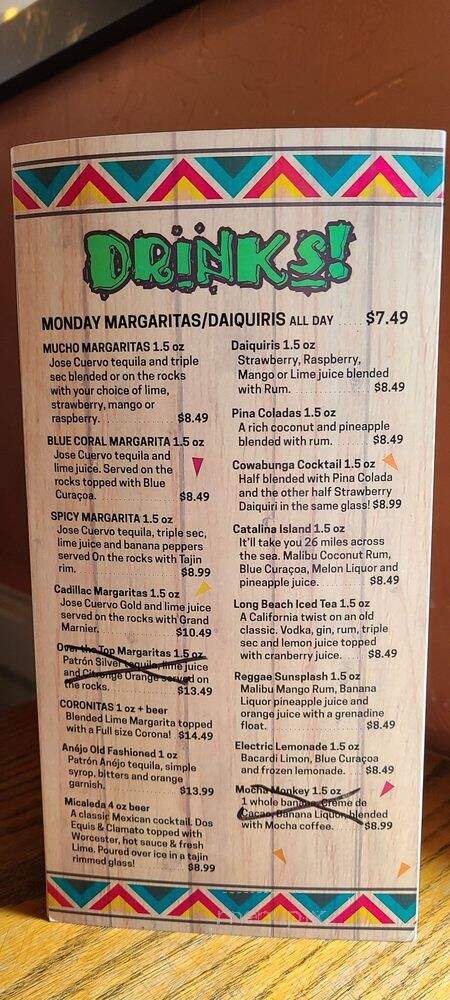 DRINKS!
MONDAY MARGARITAS/DAIQUIRIS ALL DAY ..... $7.49
MUCHO MARGARITAS 1.5 oz
Jose Cuervo tequila and triple
sec blended or on the rocks
with your choice of lime,
strawberry, mango or
raspberry. $8.49
BLUE CORAL MARGARITA 1.5 oz
Jose Cuervo tequila and
lime juice. Served on the
rocks topped with Blue
Curaçoa. $8.49
SPICY MARGARITA 1.5 oz
Jose Cuervo tequila, triple sec,
lime juice and banana peppers
served On the rocks with Tajin
rim. $8.99
Cadillac Margaritas 1.5 oz
Jose Cuervo Gold and lime juice
served on the rocks with Grand
Marnier. $10.49
Over the Top Margaritas 1.5 oz
Patrón Silver tequila, lime juice
and Citronge Orange served on
the rocks. $13.49
CORONITAS 1 oz + beer
Blended Lime Margarita topped
with a Full size Corona! $14.49
Anéjo Old Fashioned 1 oz
Patrón Anéjo tequila, simple
syrop, bitters and orange
garnish. $13.99
Micaleda 4 oz beer
A classic Mexican cocktail. Dos
Equis & Clamato topped with
Worcester, hot sauce & fresh
Lime. Poured over ice in a tajin
rimmed glass! $8.99
Daiquiris 1.5 oz
Strawberry, Raspberry,
Mango or Lime juice blended
with Rum. $8.49
Pina Coladas 1.5 oz
A rich coconut and pineapple
blended with rum. $8.49
Cowabunga Cocktail 1.5 oz
Half blended with Pina Colada
and the other half Strawberry
Daiquiri in the same glass! $8.99
Catalina Island 1.5 oz
It'll take you 26 miles across
the sea. Malibu Coconut Rum,
Blue Curaçoa, Melon Liquor and
pineapple juice. $8.49
Long Beach Iced Tea 1.5 oz
A California twist on an old
classic. Vodka, gin, rum, triple
sec and lemon juice topped
with cranberry juice. $8.49
Reggae Sunsplash 1.5 oz
Malibu Mango Rum, Banana
Liquor pineapple juice and
orange juice with a grenadine
float. $8.49
Electric Lemonade 1.5 oz
Bacardi Limon, Blue Curaçoa
and frozen lemonade. $8.49
Mocha Monkey 1.5 oz
1 whole banana, Creme de
Cacao, Banana Liquor, blended
with Mocha coffee. $8.99